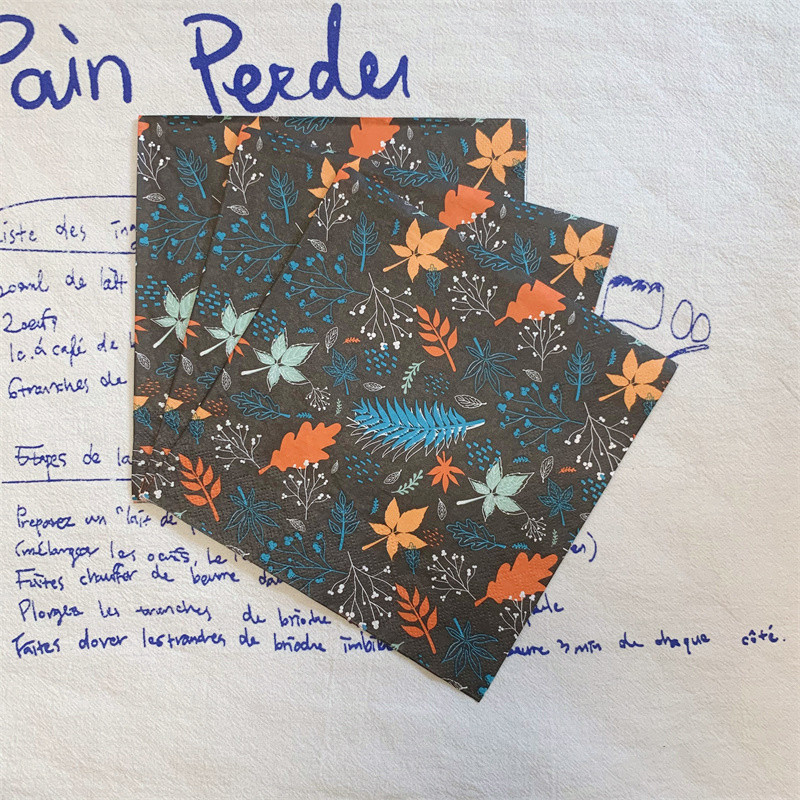 Pain Perdu
Liste des ing
200ml de lait
2 oeufs
1c.à café de
6 tranches de
Etapes de la
Preparez un "lait de
(mélanger les oeufs, le
Faites chauffer de beurre
Plongez les tranches de brioche
Faites dorer les tranches de brioche imbibé beurre 3 min de chaque côté.